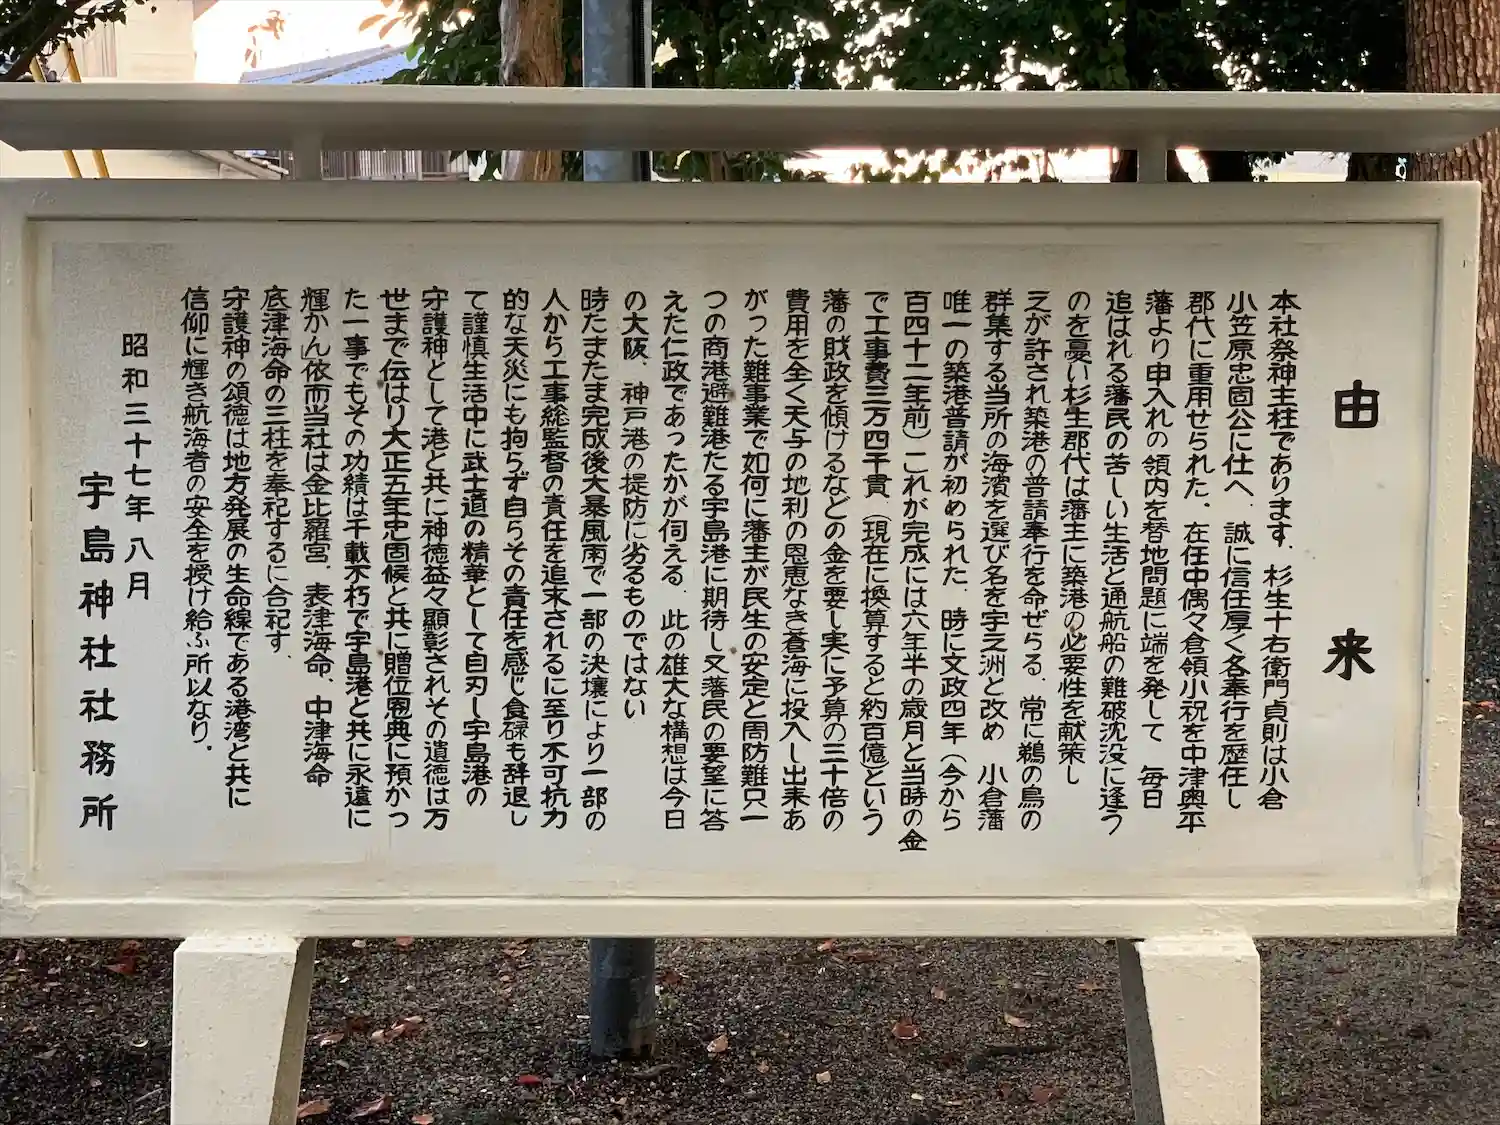 由来
本社祭神主柱であります、杉生十右衛門貞則は小倉
小笠原忠固公に仕へ、誠に信任厚く各奉行を歴任し
郡代に重用せられた。在任中偶々倉領小祝を中津奥平
藩より申入れの領内を替地問題に端を発して 毎日
追はれる藩民の苦しい生活と通航船の難破沈没に逢う
のを憂い杉生郡代は藩主に築港の必要性を献策し
之が許され築港の普請奉行を命ぜらる、常に鵜の鳥の
群集する当所の海濱を選び名を宇之洲と改め 小倉藩
唯一の築港普請が初められた、時に文政四年(今から
百四十二年前)これが完成には六年半の歳月と当時の金
で工事費三万四千貫、(現在に換算すると約百億)という
藩の財政を傾けるなどの金を要し実に予算の三十倍の
費用を全く天与の地利の恩恵なき蒼海に投入し出来あ
がった難事業で如何に藩主が民生の安定と周防難只一
つの商港避難港たる宇島港に期待し又藩民の要望に答
えた仁政であったかが伺える、此の雄大な構想は今日
の大阪、神戸港の堤防に劣るものではない
時たまたま完成後大暴風雨で一部の決壊により一部の
人から工事総監督の責任を追末されるに至り不可抗力
的な天災にも拘らず自らその責任を感じ食碌も辞退し
て謹慎生活中に武士道の精華として自刃し宇島港の
守護神として港と共に神徳益々顯彰されその遺徳は万
世まで伝はり大正五年忠固候と共に贈位恩典に預かっ
た一事でもその功績は千載不朽で宇島港と共に永遠に
輝かん」依而当社は金比羅宮、表津海命、中津海命
底津海命の三柱を奉祀するに合祀す、
守護神の頌徳は地方発展の生命線である港湾と共に
信仰に輝き航海者の安全を授け給ふ所以なり。
昭和三十七年八月
宇島神社社務所